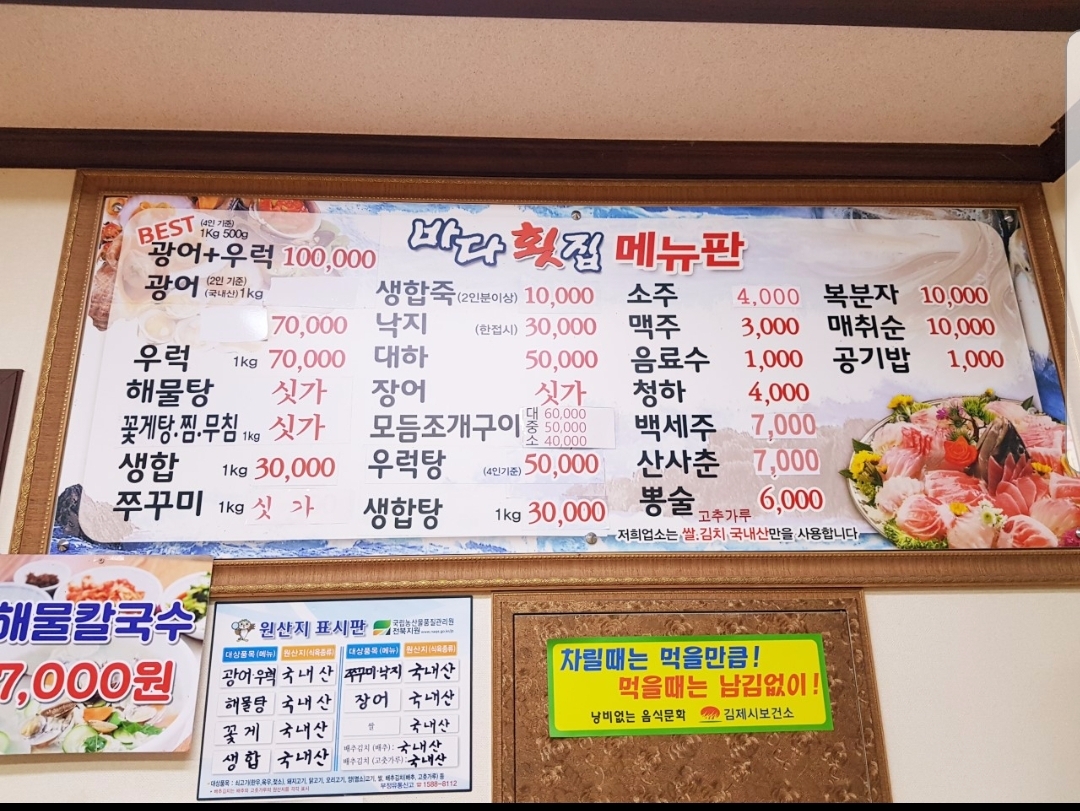 바다 횟집 메뉴판
BEST (4인 기준) 1Kg 500g
광어+우럭 100,000
광어 (2인 기준) (국내산) 1kg
70,000
우럭 1kg 70,000
해물탕 싯가
꽃게탕.찜.무침 1kg 싯가
생합 1kg 30,000
쭈꾸미 1kg 싯 가
생합죽 (2인분이상) 10,000
낙지 (한접시) 30,000
대하 50,000
장어 싯가
모듬조개구이 대 60,000
중 50,000
소 40,000
우럭탕 (4인기준) 50,000
생합탕 1kg 30,000
소주 4,000
맥주 3,000
음료수 1,000
청하 4,000
백세주 7,000
산사춘 7,000
뽕술 6,000
복분자 10,000
매취순 10,000
공기밥 1,000
고추가루
저희업소는 쌀.김치 국내산만을 사용합니다
해물칼국수
7,000원
원산지 표시판 국립농산물품질관리원 전북지원
대상품목 (메뉴) 원산지 (식육종류) 대상품목 (메뉴) 원산지 (식육종류)
광어우럭 국내산 쭈꾸미낙지 국내산
해물탕 국내산 장어 국내산
꽃게 국내산 쌀 국내산
생합 국내산 배추김치 (배추) : 국내산
배추김치 (고춧가루) : 국내산
부정유통신고 ☎ 1588-8112
차릴때는 먹을만큼!
먹을때는 남김없이!
낭비없는 음식문화 김제시보건소